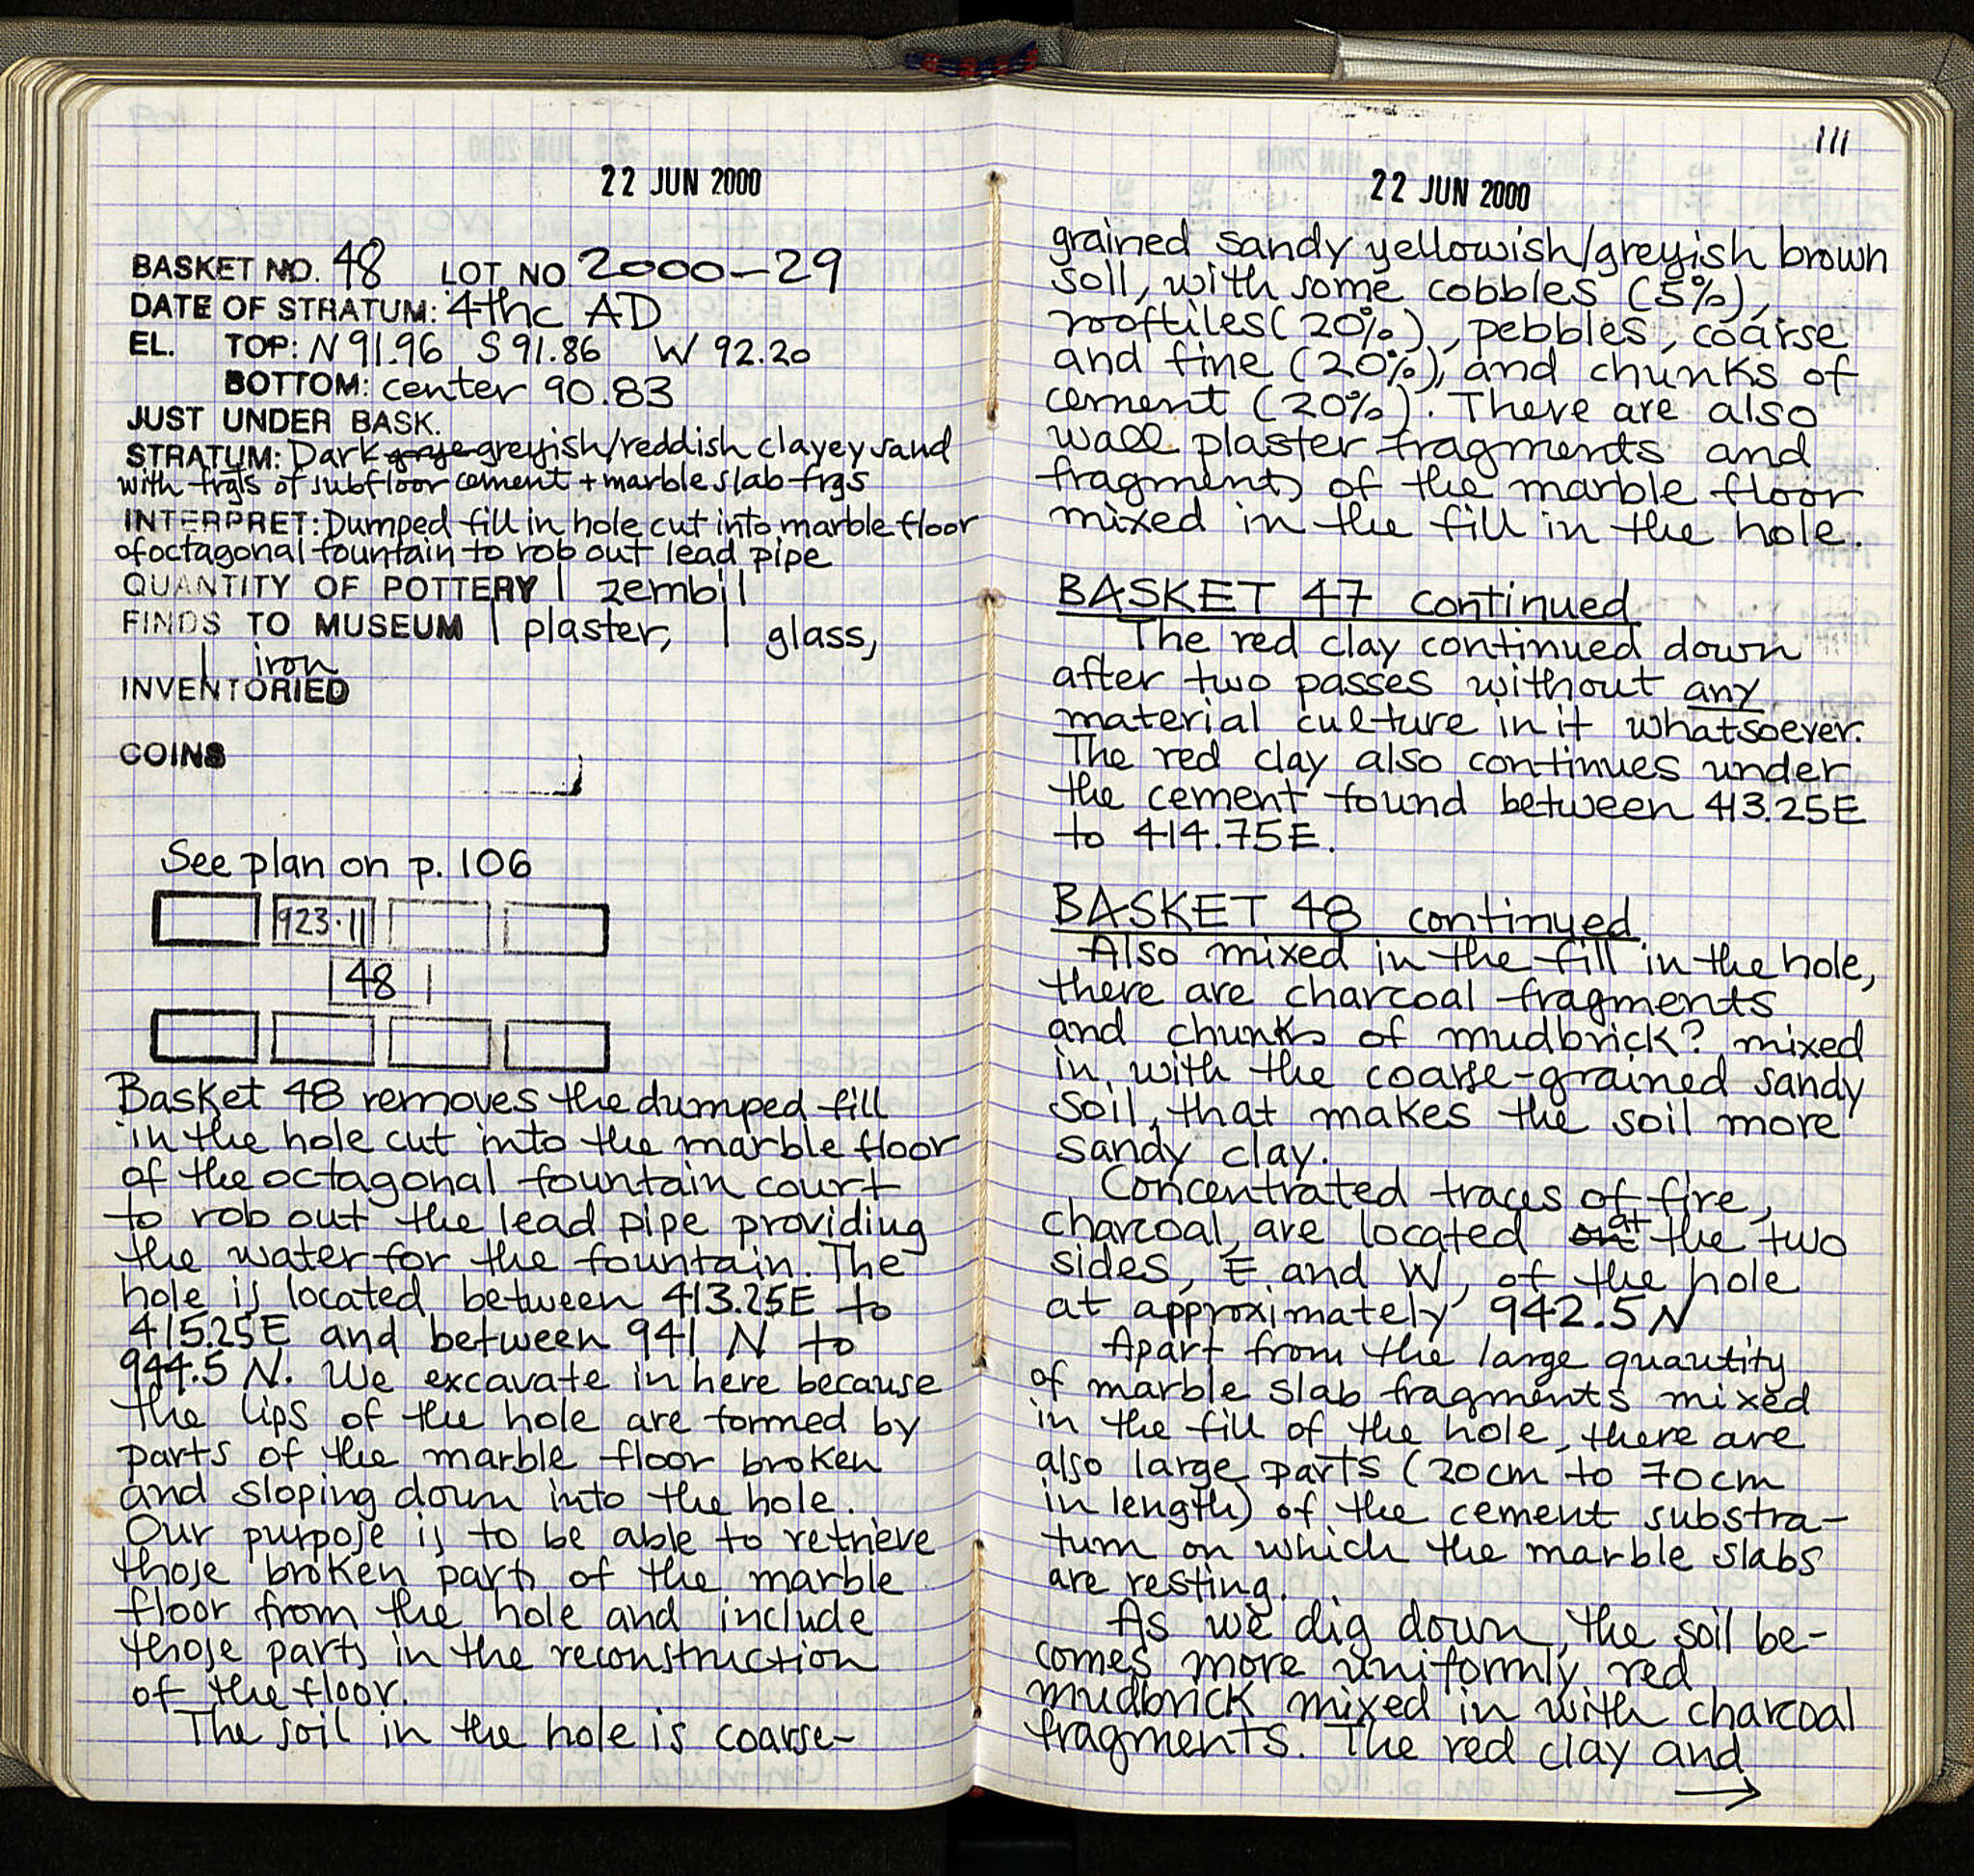 22 JUN 2000
BASKET NO. 48 LOT NO 2000-29
DATE OF STRATUM: 4thc AD
EL. TOP: N 91.96 S 91.86 W 92.20
BOTTOM: center 90.83
JUST UNDER BASK.
STRATUM: Dark greyish/reddish clayey sand
with frgts of subfloor cement + marble slab frgs
INTERPRET: Dumped fill in hole cut into marble floor
of octagonal fountain to rob out lead pipe
QUANTITY OF POTTERY 1 zembil
FINDS TO MUSEUM 1 plaster, 1 glass,
1 iron
INVENTORIED
COINS
See plan on p. 106
923.11
48
Basket 48 removes the dumped fill
in the hole cut into the marble floor
of the octagonal fountain court
to rob out the lead pipe providing
the water for the fountain. The
hole is located between 413.25E to
415.25E and between 941 N to
944.5 N. We excavate in here because
the lips of the hole are formed by
parts of the marble floor broken
and sloping down into the hole.
Our purpose is to be able to retrieve
those broken parts of the marble
floor from the hole and include
those parts in the reconstruction
of the floor.
The soil in the hole is coarse-
111
22 JUN 2000
grained sandy yellowish/greyish brown
soil, with some cobbles (5%),
rooftiles (20%), pebbles, coarse
and fine (20%), and chunks of
cement (20%). There are also
wall plaster fragments and
fragments of the marble floor
mixed in the fill in the hole.
BASKET 47 continued
The red clay continued down
after two passes without any
material culture in it whatsoever.
The red clay also continues under
the cement found between 413.25E
to 414.75E.
BASKET 48 continued
Also mixed in the fill in the hole,
there are charcoal fragments
and chunks of mudbrick? mixed
in, with the coarse-grained sandy
soil, that makes the soil more
sandy clay.
Concentrated traces of fire,
charcoal, are located at the two
sides, E and W, of the hole
at approximately 942.5 N
Apart from the large quantity
of marble slab fragments mixed
in the fill of the hole, there are
also large parts (20cm to 70cm
in length) of the cement substra-
tum on which the marble slabs
are resting.
As we dig down, the soil be-
comes more uniformly red
mudbrick mixed in with charcoal
fragments. The red clay and
→